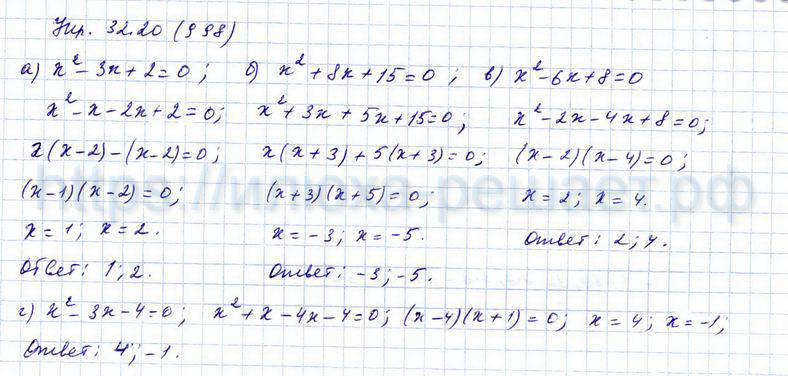 Упр. 32.20 (998)
а) x² - 3x + 2 = 0 ; б) x² + 8x + 15 = 0 ; в) x² - 6x + 8 = 0
x² - x - 2x + 2 = 0; x² + 3x + 5x + 15 = 0; x² - 2x - 4x + 8 = 0;
x(x-2) - (x-2) = 0; x(x+3) + 5(x+3) = 0; (x-2)(x-4) = 0;
(x-1)(x-2) = 0; (x+3)(x+5) = 0; x = 2; x = 4.
x = 1; x = 2. x = -3; x = -5. Ответ: 2; 4.
Ответ: 1; 2. Ответ: -3; -5.
г) x² - 3x - 4 = 0; x² + x - 4x - 4 = 0; (x-4)(x+1) = 0; x = 4; x = -1;
Ответ: 4; -1.
https://инюха-решает.рф